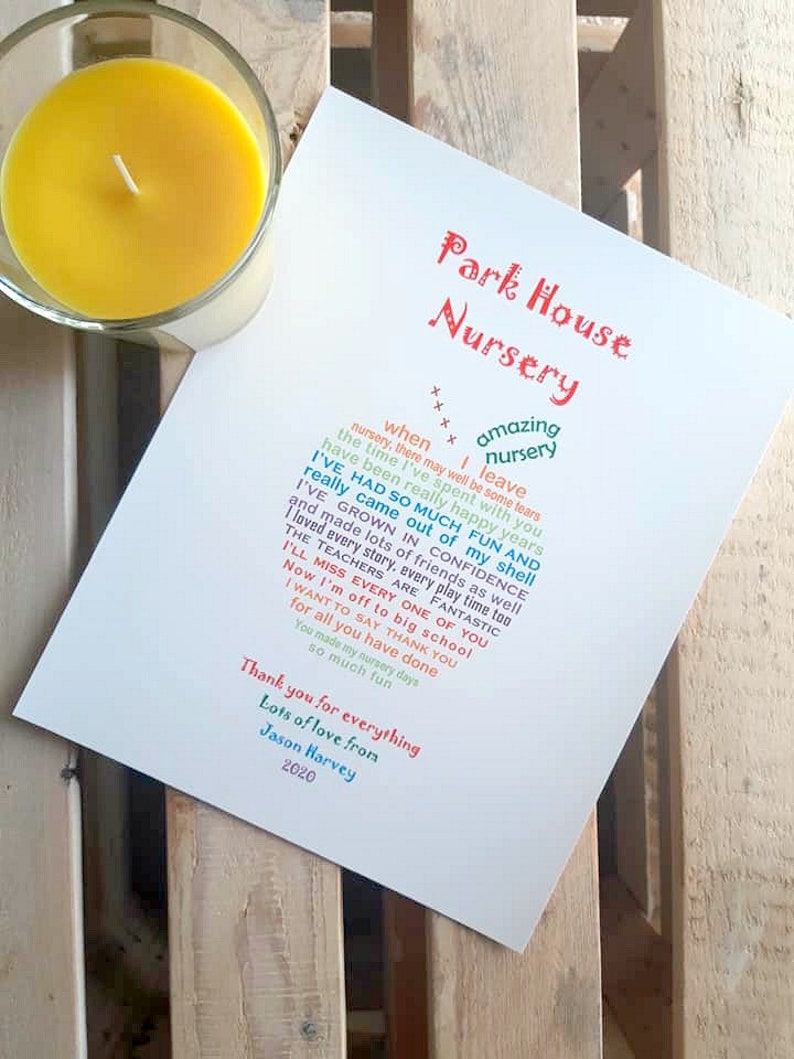 Park House
Nursery
x x x x
amazing
nursery
when I leave
nursery, there may well be some tears
the time I've spent with you
have been really happy years
I'VE HAD SO MUCH FUN AND
really came out of my shell
I'VE GROWN IN CONFIDENCE
and made lots of friends as well
I loved every story, every play time too
THE TEACHERS ARE FANTASTIC
I'LL MISS EVERY ONE OF YOU
Now I'm off to big school
I WANT TO SAY THANK YOU
for all you have done
You made my nursery days
so much fun
Thank you for everything
Lots of love from
Jason Harvey
2020